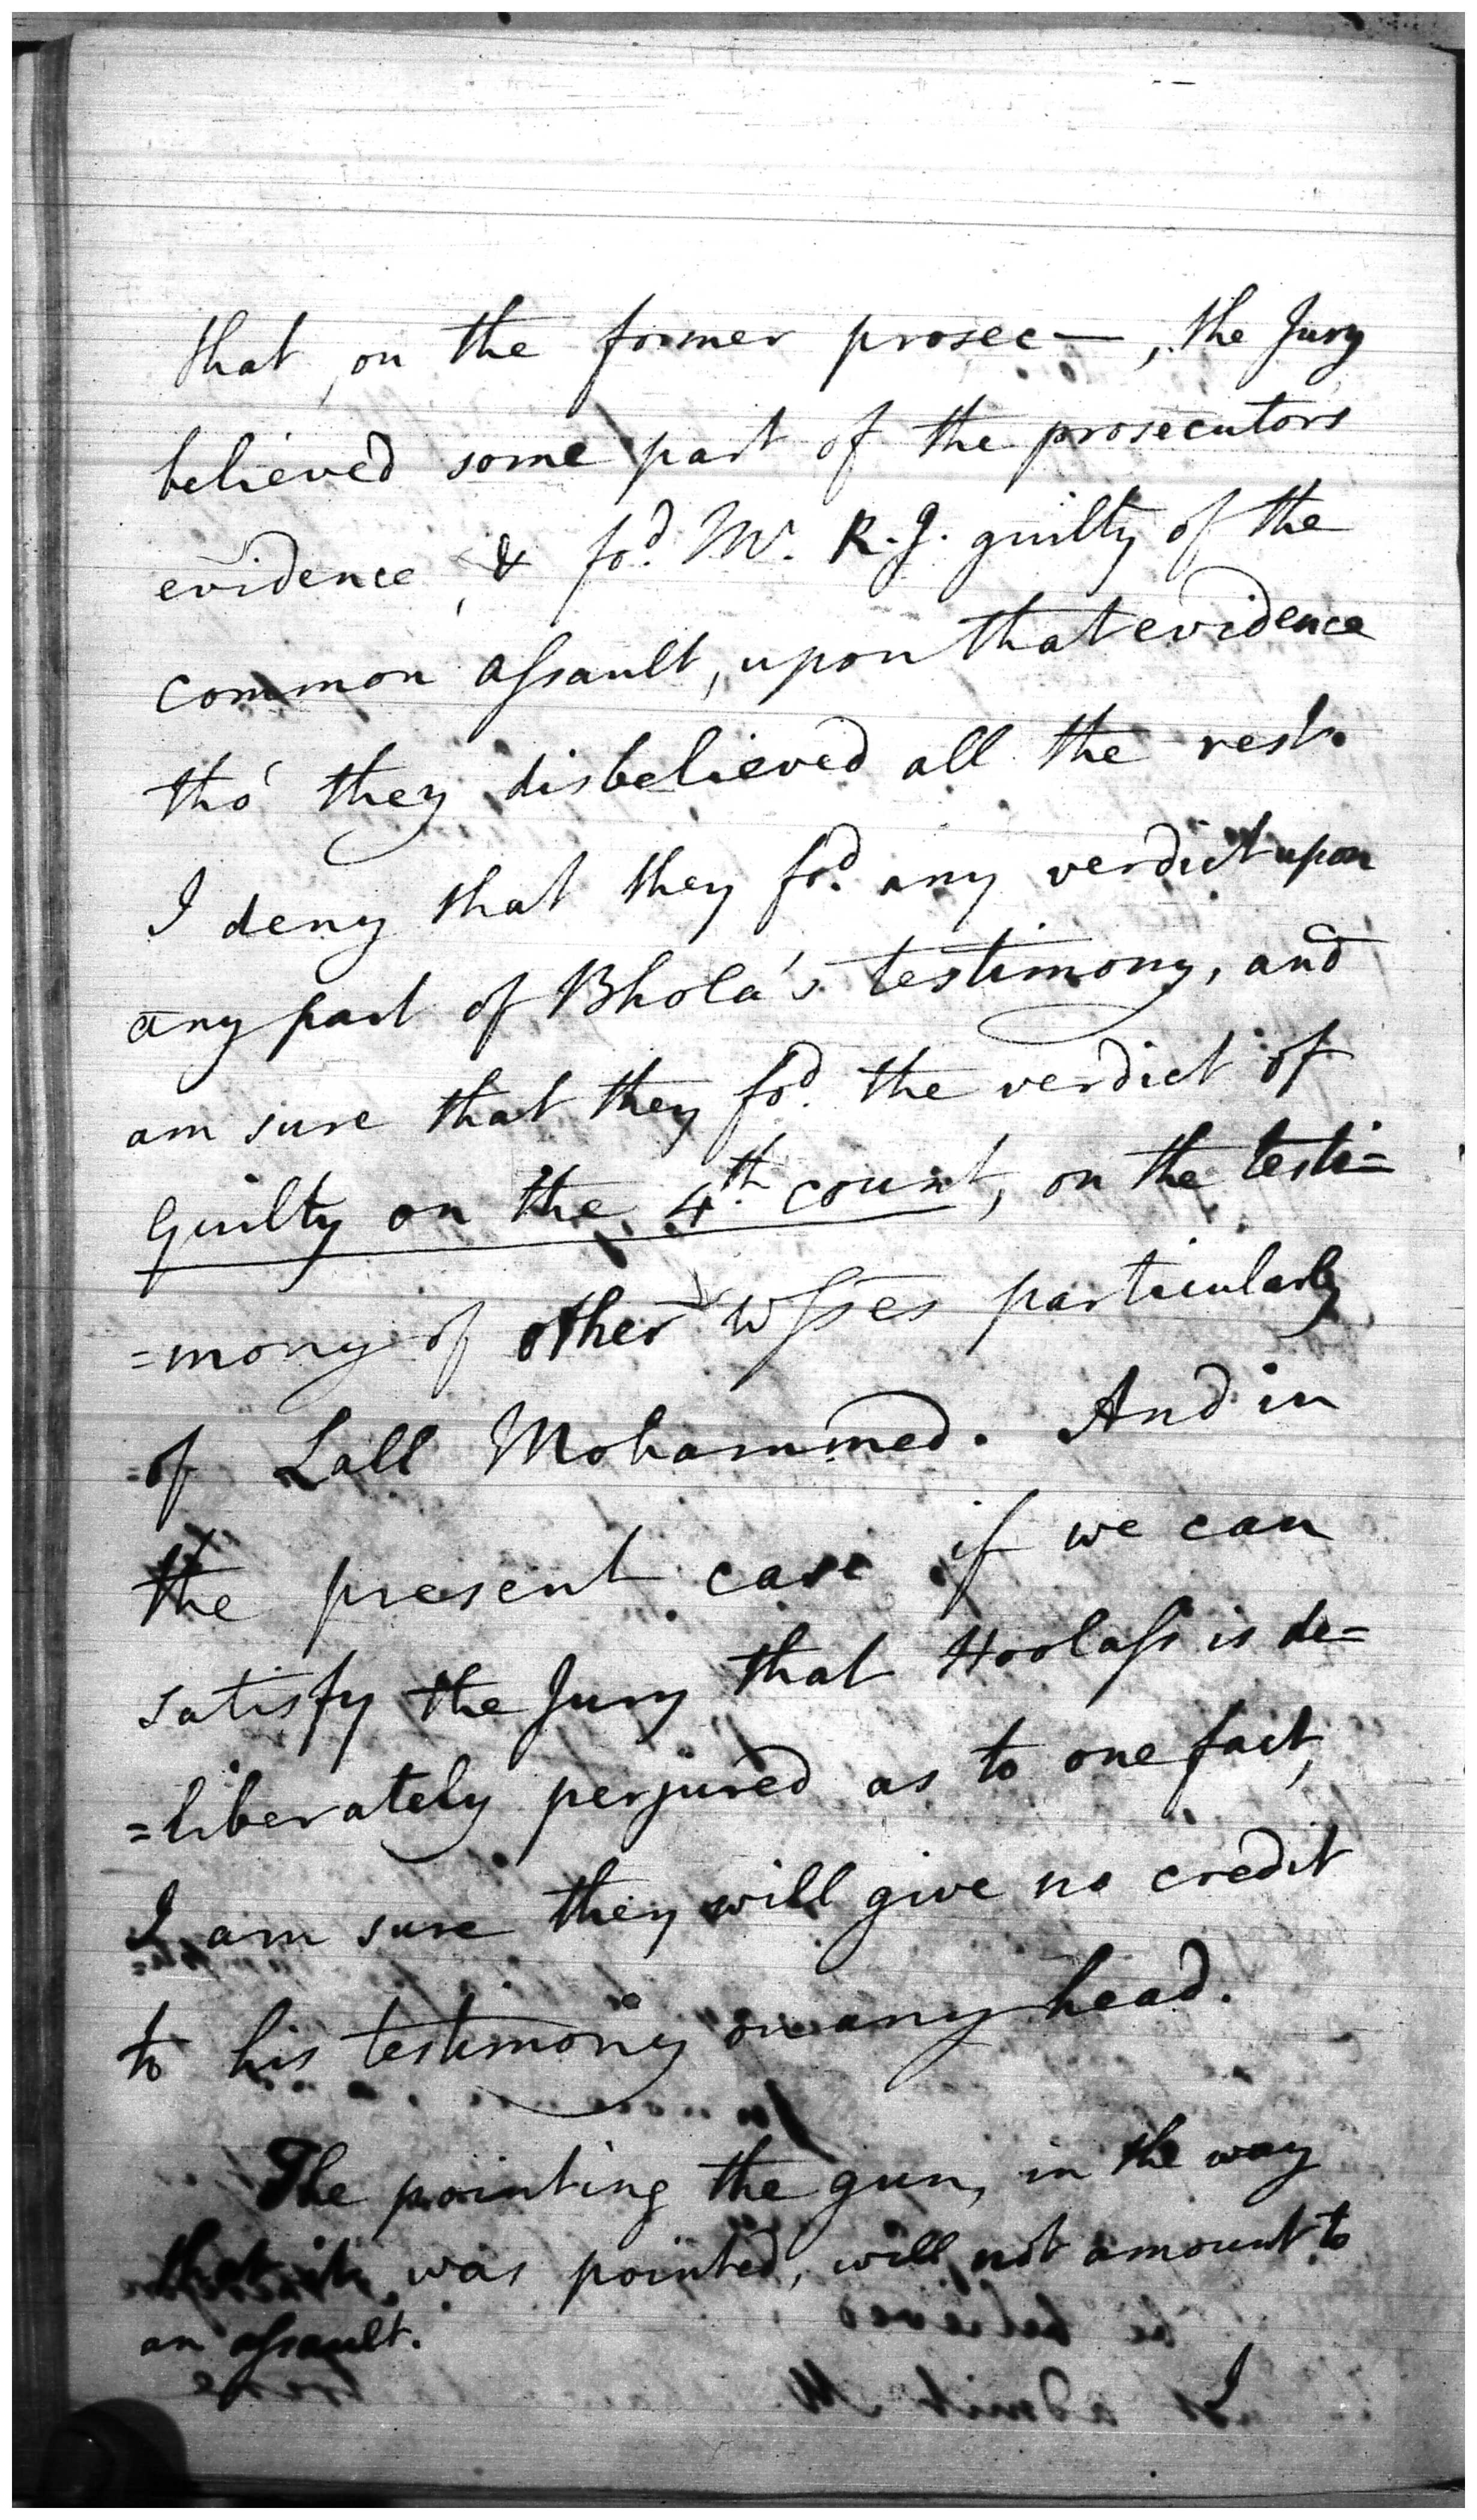 that, on the former prosec—, the Jury
believed some part of the prosecutors
evidence, & fod. Mr. R. J. guilty of the
common assault, upon that evidence
tho' they disbelieved all the rest.
I deny that they fod. any verdict upon
any part of Bhola's testimony, and
am sure that they fod. the verdict of
guilty on the 4th. count, on the testi=
=mony of other wsses particularly
=of Lall Mohammed. And in
the present case if we can
satisfy the Jury that Hoolass is de=
=liberately perjured as to one fact,
I am sure they will give no credit
to his testimony on any head.
The pointing the gun, in the way
that it was pointed, will not amount to
an assault.